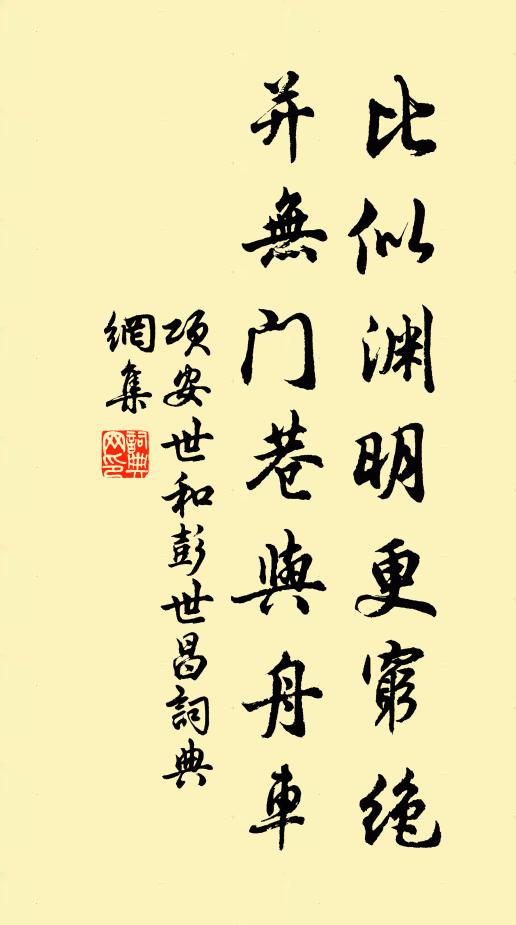 比似渊明更窮绝
并無門巷與舟車
项安世和彭世昌詞典
網集
詞典網印